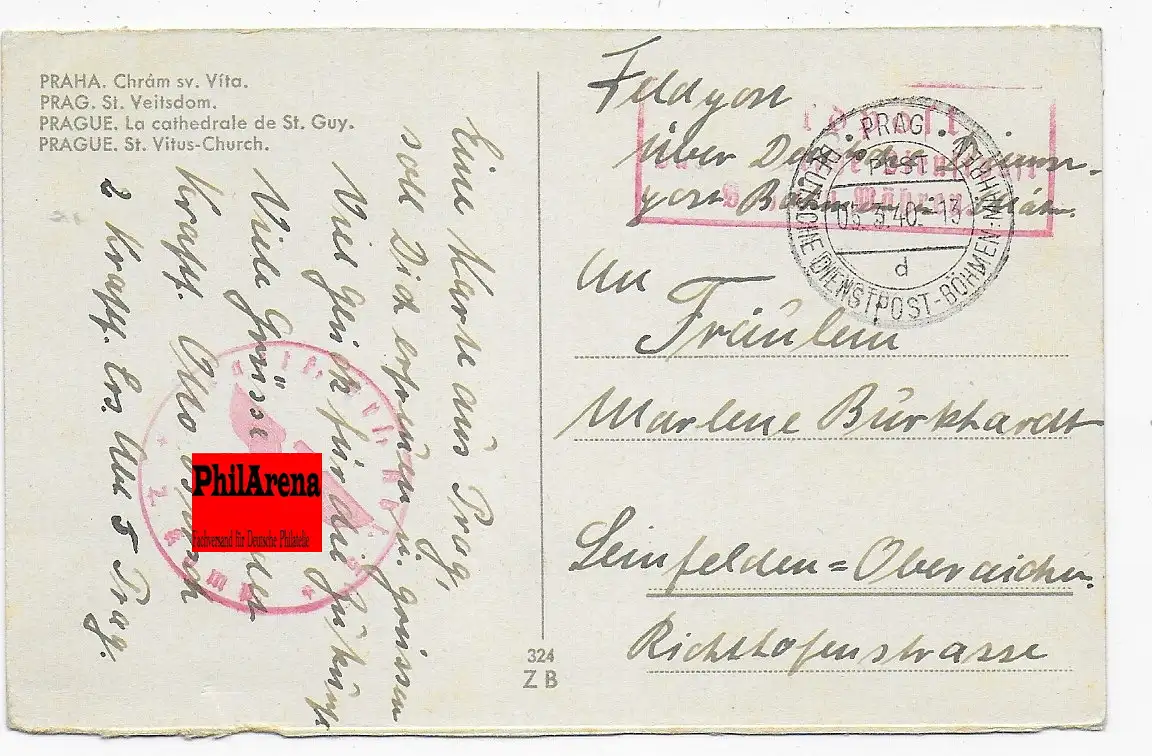 PRAHA. Chrám sv. Víta.
PRAG. St. Veitsdom.
PRAGUE. La cathedrale de St. Guy.
PRAGUE. St. Vitus-Church.
Eine Karte aus Prag,
soll Dich erfreuen u. grüssen
Viel Glück für die Zukunft
Viele Grüsse der
Krapf. Otto
2 Krapf. Ers. Abt 5 Prag.
PhilArena
Fachversand für Deutsche Philatelie
324
Z B
Feldpost
über Deutsche Dienst-
post Böhmen Mähr.
PRAG
POST
05.3.40.-13
d
DEUTSCHE DIENSTPOST-BÖHMEN-MÄHREN
An
Fräulein
Marlene Burkhardt
Leinfelden=Oberaichen.
Richthofenstrasse